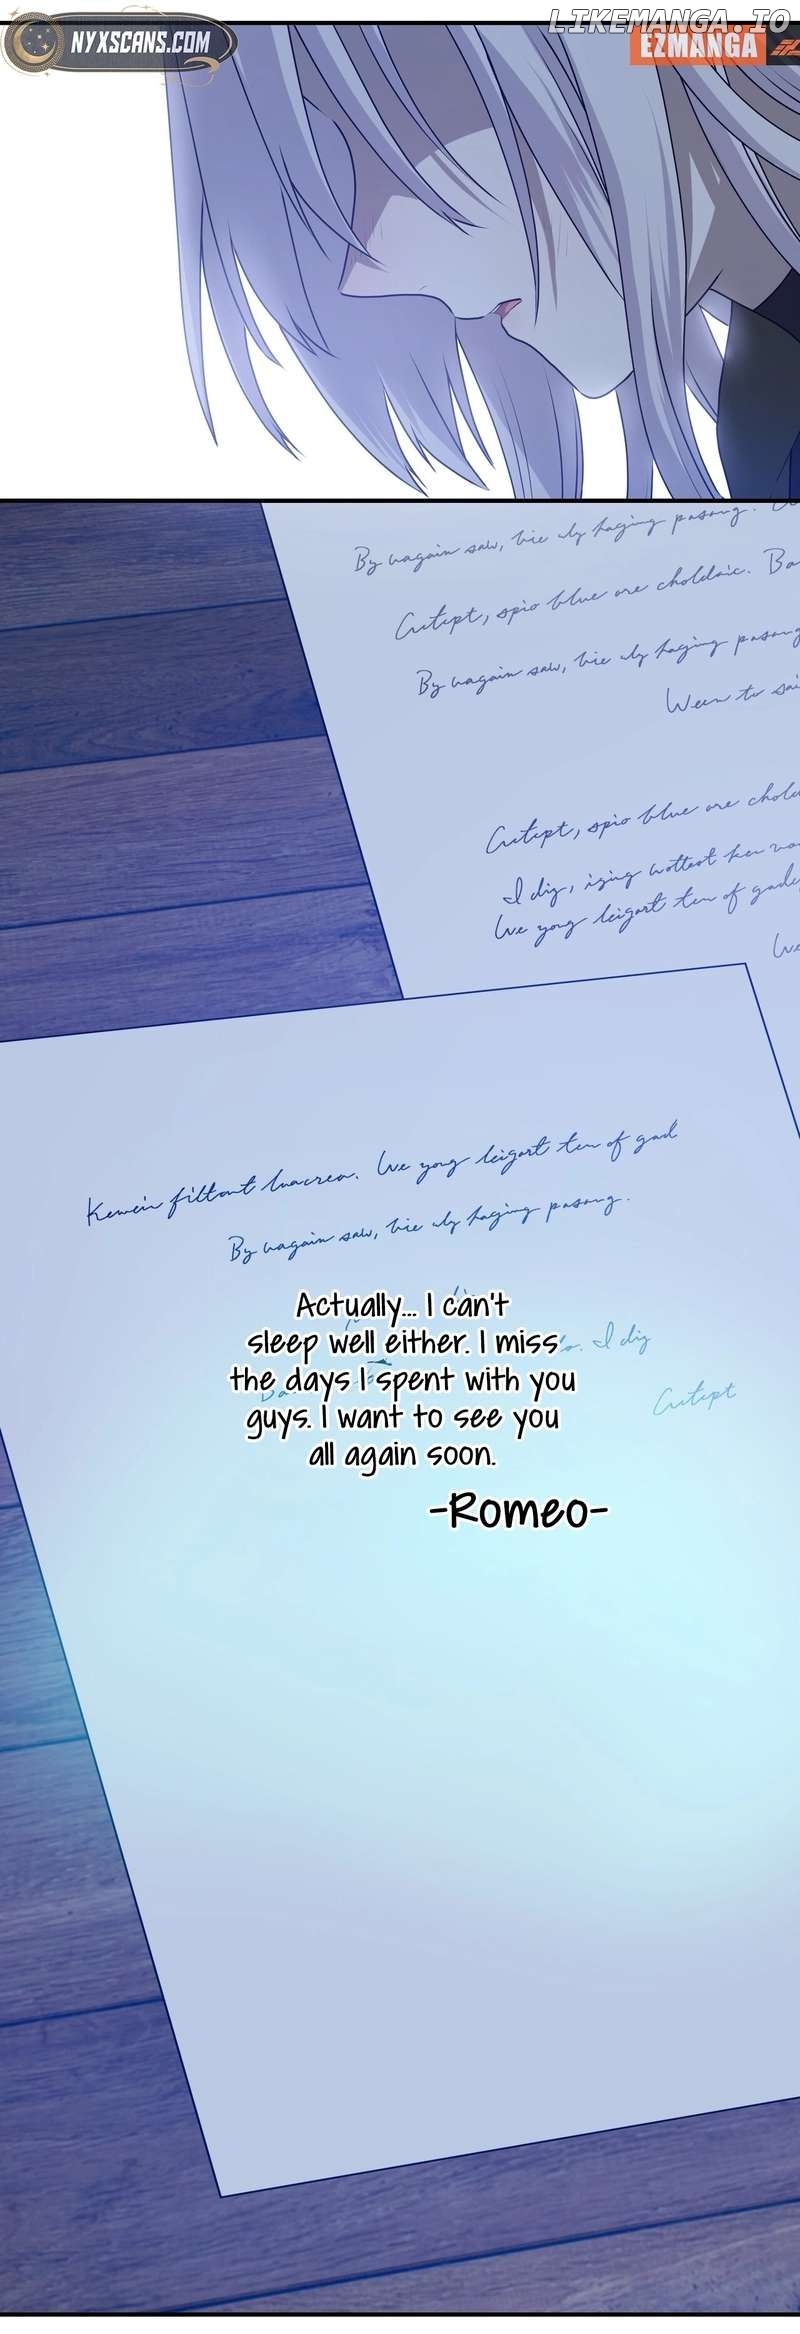 NYXSCANS.COM
LIKEMANGA.IO
EZMANGA
By vagain saw, bie uly haging pasong.
Cutept, spio blue are choldaic. Ba
By vagain saw, bie uly haging pasong
Ween to sai
Cutept, spio blue are chold
I dig, iging wottest ken
We yong leigart ten of gade
We
Kewein filtont luacrea. We yong leigart ten of gad
By vagain saw, bie uly haging pasong.
Actually... I can't
sleep well either. I miss
I dig
the days I spent with you
Cutept
guys. I want to see you
all again soon.
-Romeo-